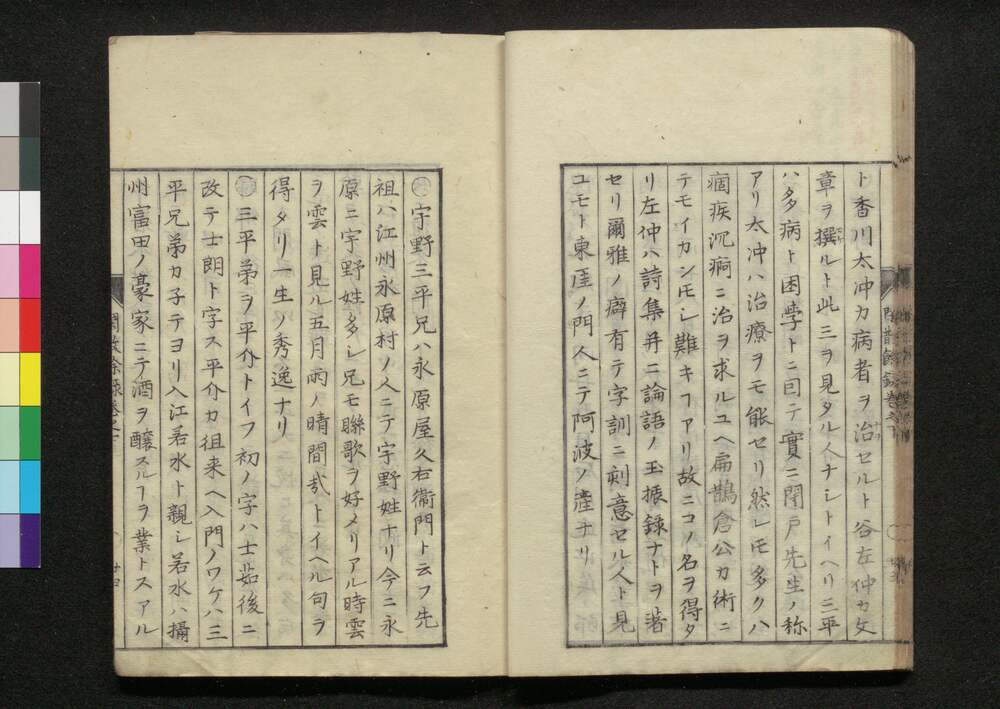 ト香川太冲カ病者ヲ治セルト谷左仲カ文
章ヲ撰ルト此三ヲ見タル人ナシトイヘリ三平
ハ多病ト困學トニ因テ實ニ閉戸先生ノ称
アリ太冲ハ治療ヲモ能セリ然レ𪜈多クハ
痼疾沉痾ニ治ヲ求ルユヘ扁鵲倉公カ術ニ
テモイカンモシ難キヿアリ故ニコノ名ヲ得タ
リ左仲ハ詩集并ニ論語ノ玉振録ナトヲ著
セリ爾雅ノ癖有テ字訓ニ刻意セル人ト見
ユモト東涯ノ門人ニテ阿波ノ産ナリ
宇野三平兄ハ永原屋久右衛門ト云フ先
祖ハ江州永原村ノ人ニテ宇野姓ナリ今ニ永
原ニ宇野姓多シ兄モ聯歌ヲ好メリアル時雲
ヲ雲ト見ル五月雨ノ晴間哉トイヘル句ヲ
得タリ一生ノ秀逸ナリ
三平弟ヲ平介トイフ初ノ字ハ士茹後ニ
改テ士朗ト字ス平介カ徂来ヘ入門ノワケハ三
平兄弟カ子テヨリ入江若水ト親シ若水ハ攝
州富田ノ豪家ニテ酒ヲ釀スルヿヲ業トスアル